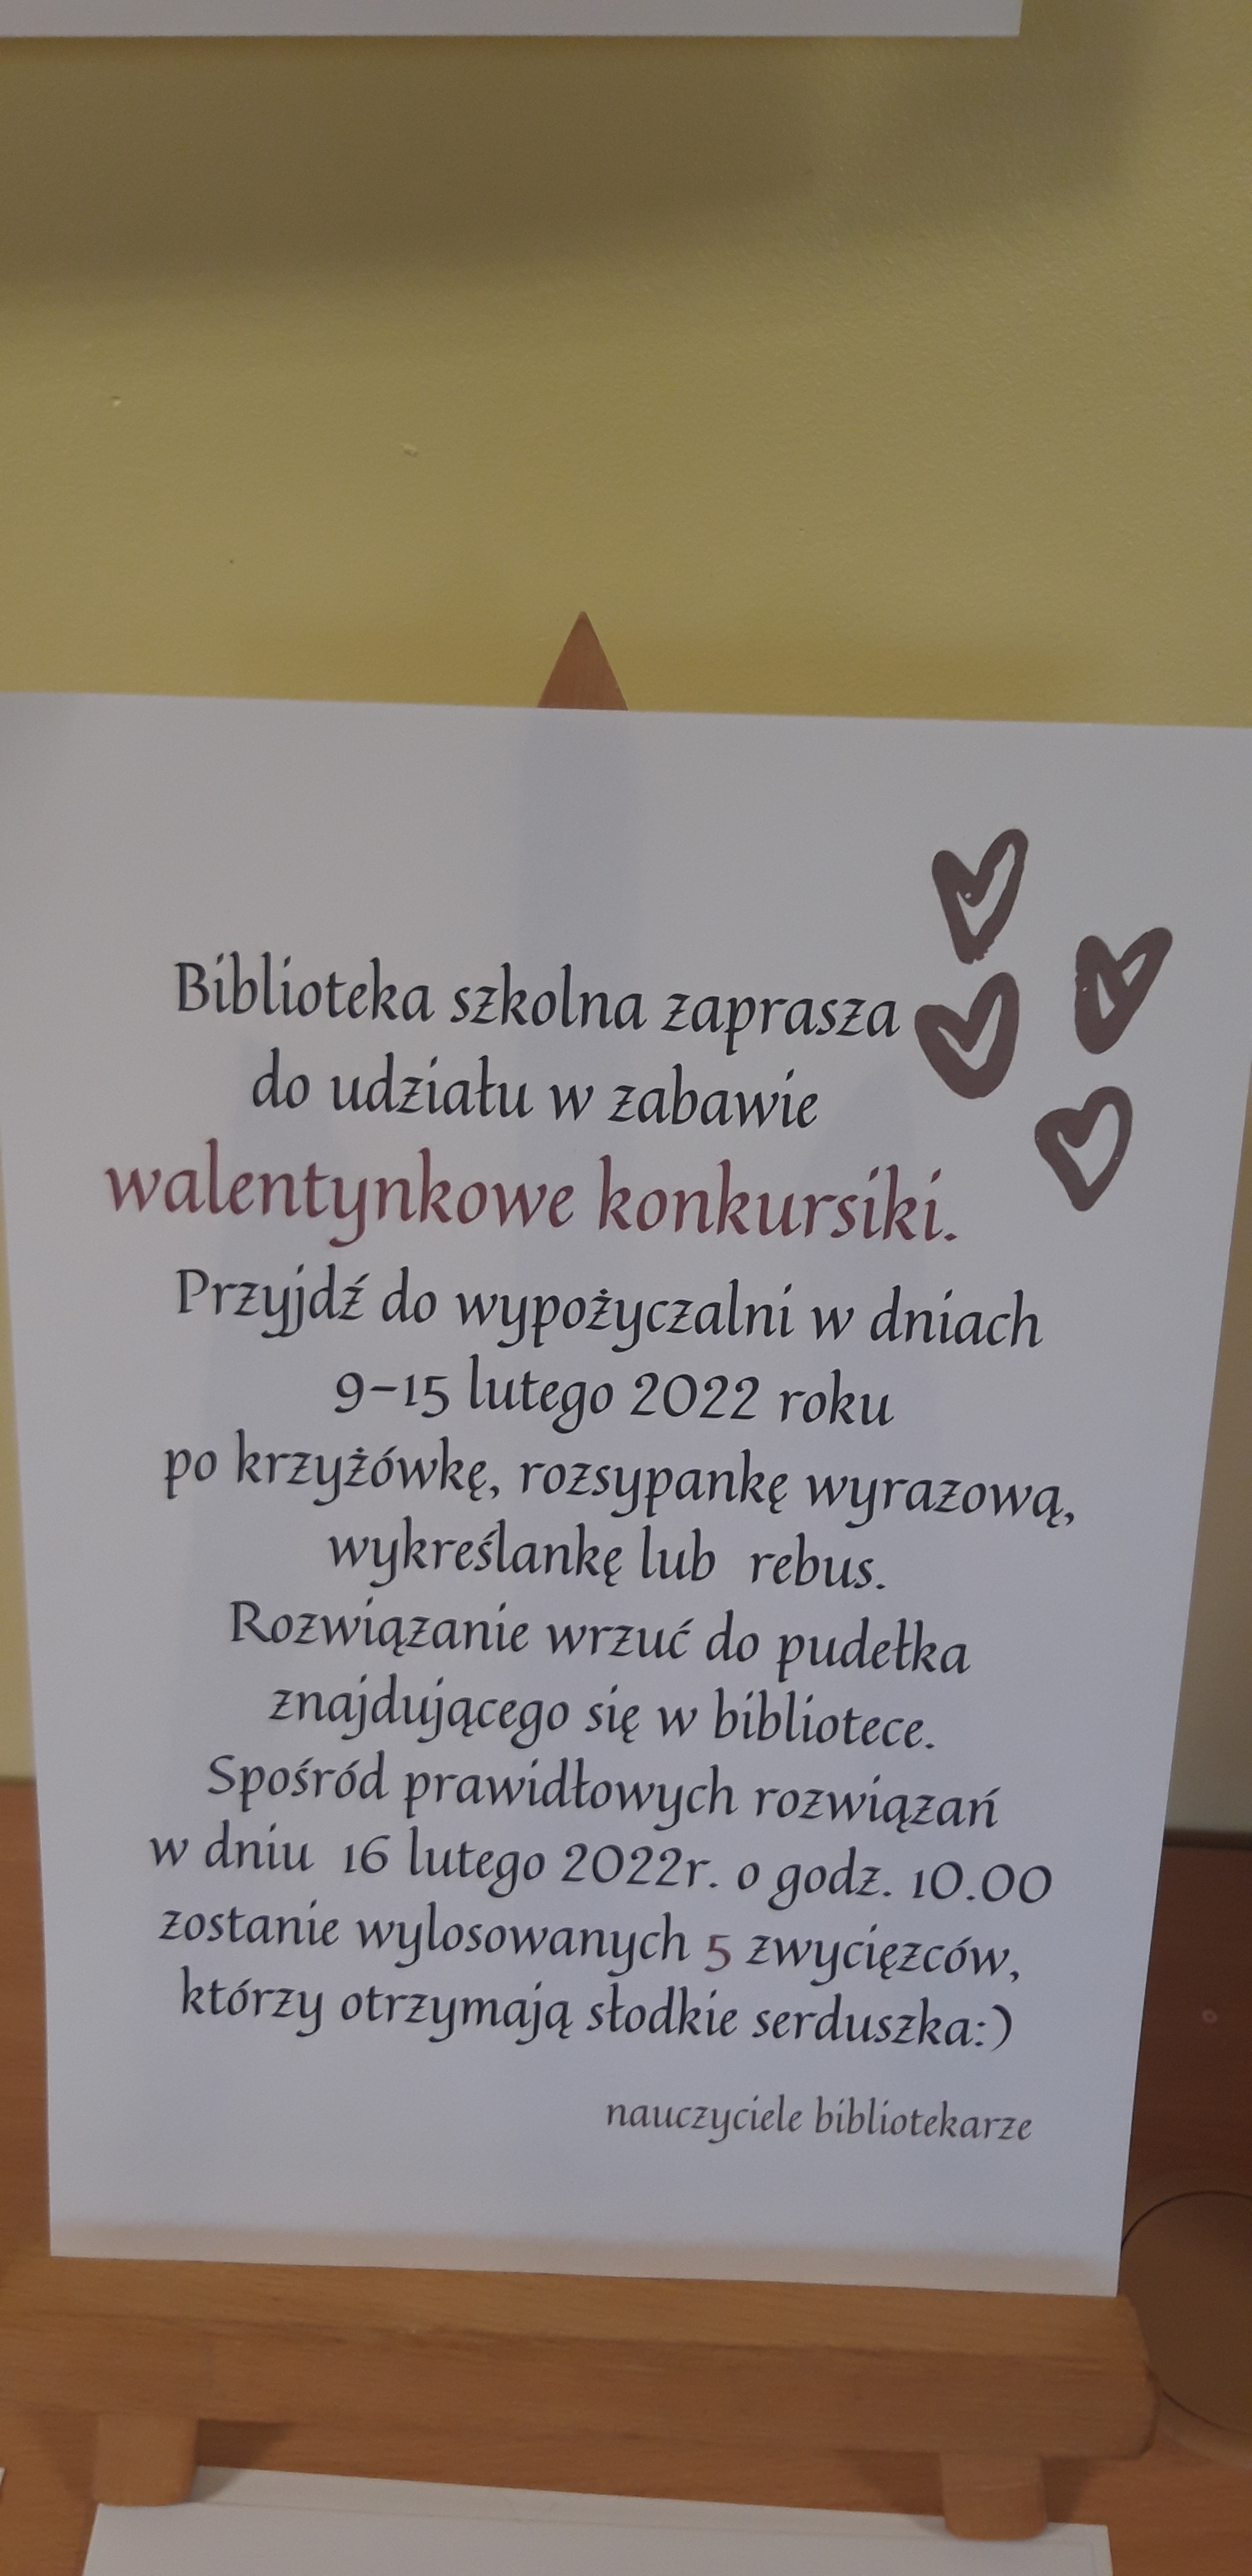 Biblioteka szkolna zaprasza
do udziału w zabawie
walentynkowe konkursiki.
Przyjdź do wypożyczalni w dniach
9-15 lutego 2022 roku
po krzyżówkę, rozsypankę wyrazową,
wykreślankę lub rebus.
Rozwiązanie wrzuć do pudełka
znajdującego się w bibliotece.
Spośród prawidłowych rozwiązań
w dniu 16 lutego 2022r. o godz. 10.00
zostanie wylosowanych 5 zwycięzców,
którzy otrzymają słodkie serduszka:)
nauczyciele bibliotekarze